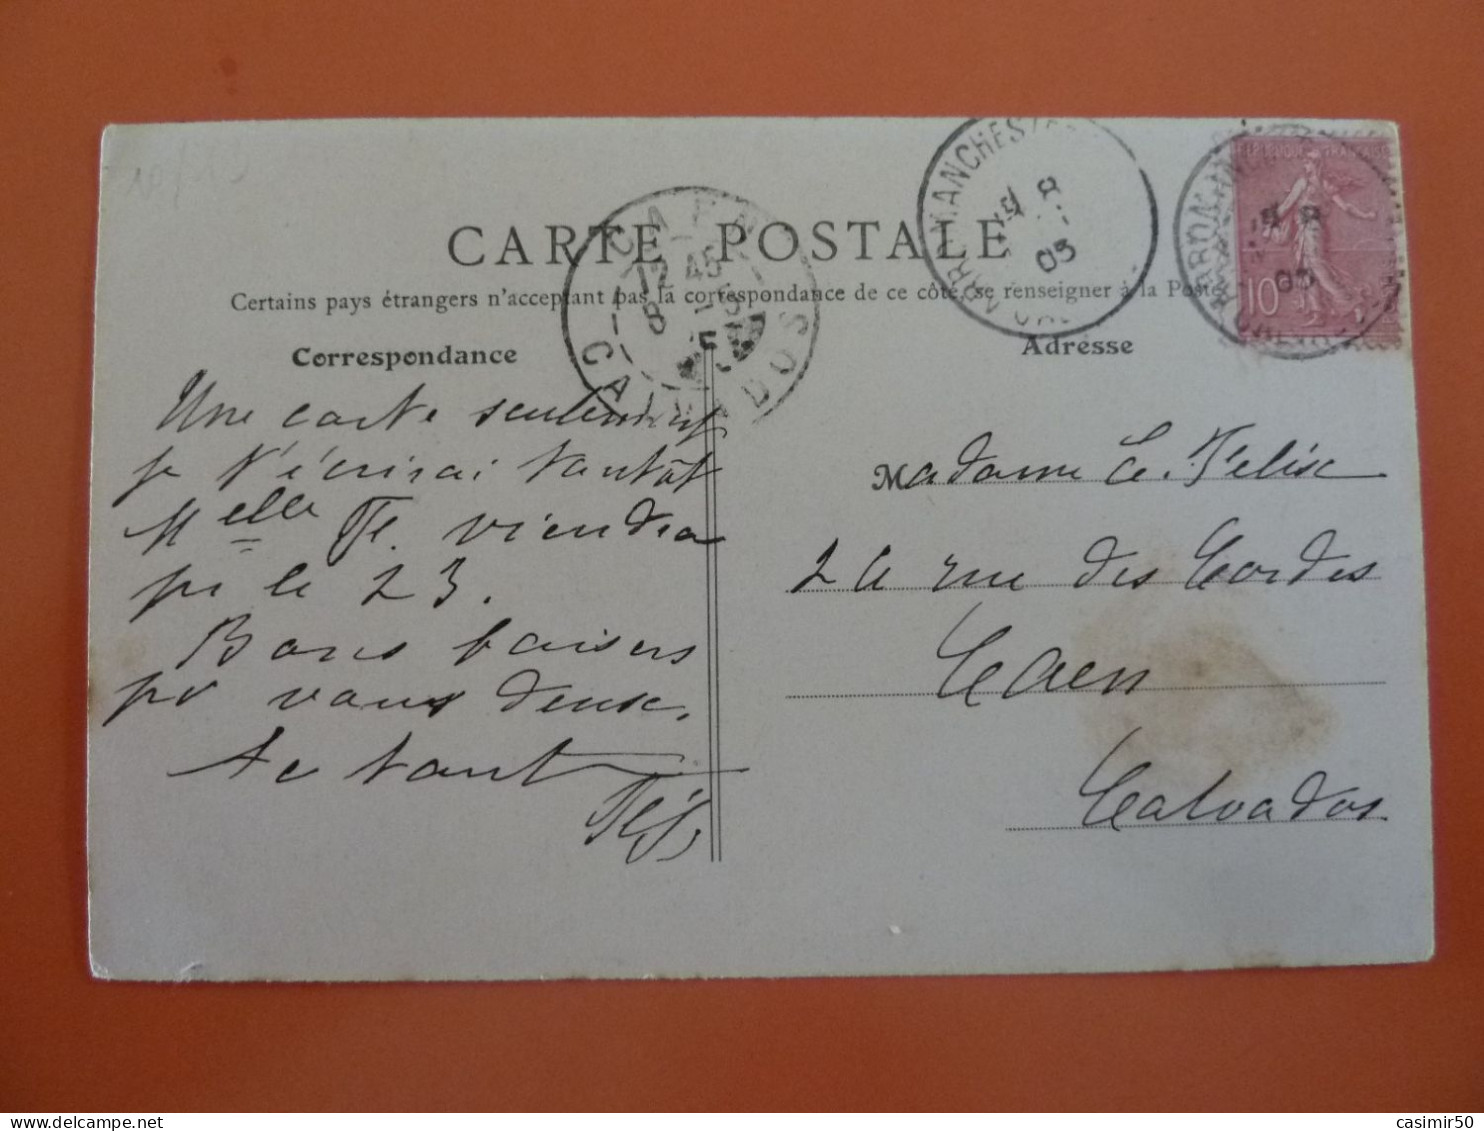 CARTE POSTALE
Certains pays étrangers n'acceptent pas la correspondance de ce côté, se renseigner à la Poste
Correspondance
Adresse
Une carte seulement
je t'écrirai tantôt
Melle Fe. viendra
pr le 23.
Bons baisers
pr vous deux.
A tantôt
Madame Le
rue des Cordes
Caen
Calvados
CAEN
12 45
CALVADOS
MANCHES
8
05
RÉPUBLIQUE FRANÇAISE
10
05
casimir50